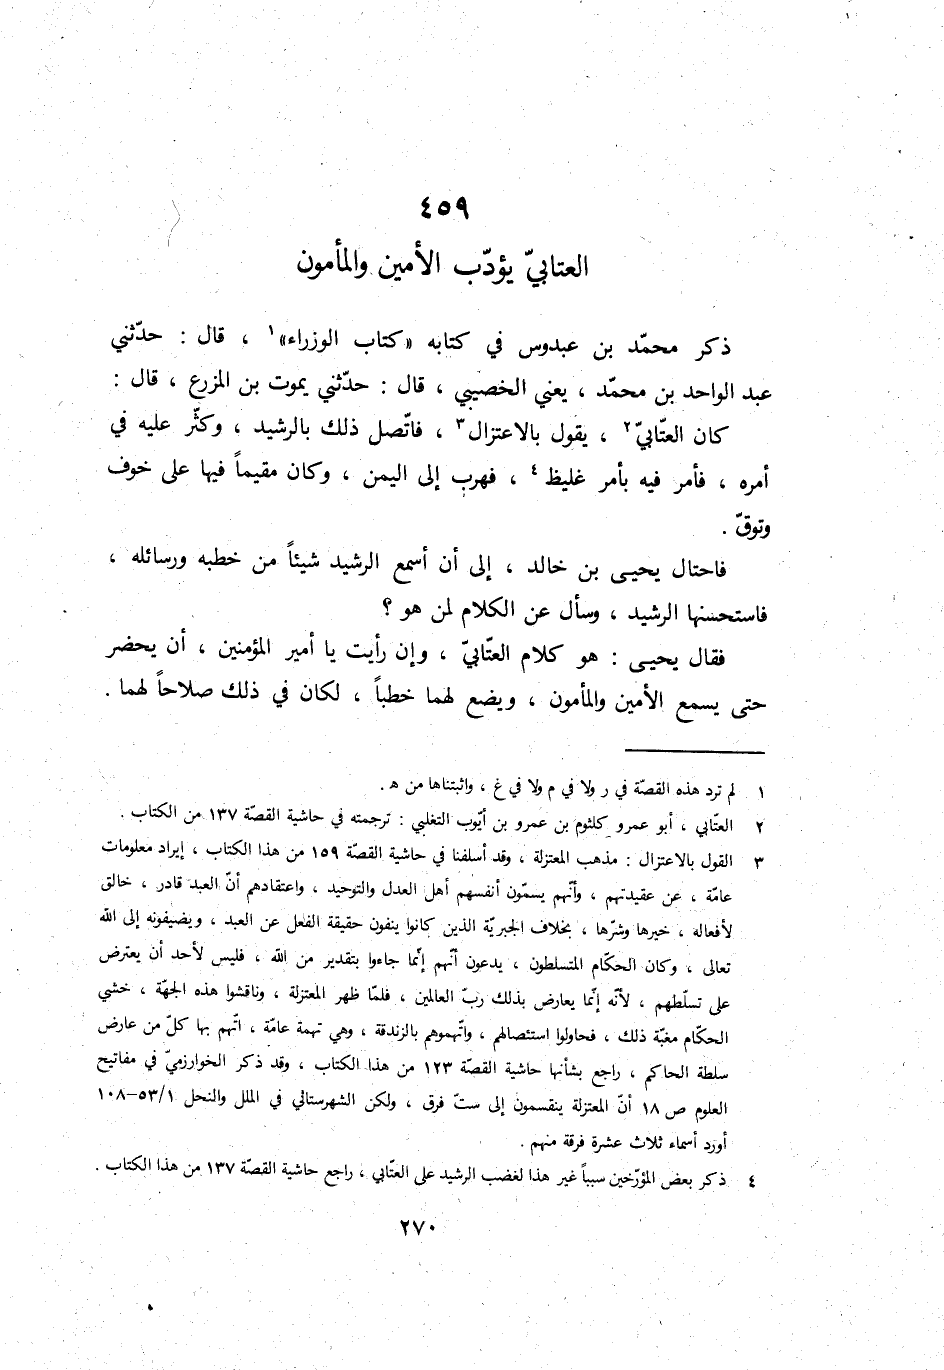 ٤٥٩
العتابيّ يؤدّب الأمين والمأمون
ذكر محمّد بن عبدوس في كتابه «كتاب الوزراء»١ ، قال : حدّثني
عبد الواحد بن محمّد ، يعني الخصيبي ، قال : حدّثني يموت بن المزرع ، قال :
كان العتّابيّ٢ ، يقول بالاعتزال٣ ، فاتّصل ذلك بالرشيد ، وكثّر عليه في
أمره ، فأمر فيه بأمر غليظ٤ ، فهرب إلى اليمن ، وكان مقيماً فيها على خوف
وتوقّ .
فاحتال يحيـى بن خالد ، إلى أن أسمع الرشيد شيئاً من خطبه ورسائله ،
فاستحسنها الرشيد ، وسأل عن الكلام لمن هو ؟
فقال يحيـى : هو كلام العتّابيّ ، وإن رأيت يا أمير المؤمنين ، أن يحضر
حتى يسمع الأمين والمأمون ، ويضع لهما خطباً ، لكان في ذلك صلاحاً لهما .
١ لم ترد هذه القصّة في ر ولا في م ولا في غ ، واثبتناها من ه .
٢ العتّابي ، أبو عمرو كلثوم بن عمرو بن أيّوب التغلبي : ترجمته في حاشية القصّة ١٣٧ من الكتاب .
٣ القول بالاعتزال : مذهب المعتزلة ، وقد أسلفنا في حاشية القصّة ١٥٩ من هذا الكتاب ، إيراد معلومات
عامّة ، عن عقيدتهم ، وأنّهم يسمّون أنفسهم أهل العدل والتوحيد ، واعتقادهم أنّ العبد قادر ، خالق
لأفعاله ، خيرها وشرّها ، بخلاف الجبريّة الذين كانوا ينفون حقيقة الفعل عن العبد ، ويضيفونه إلى الله
تعالى ، وكان الحكّام المتسلطون ، يدعون أنّهم إنّما جاءوا بتقدير من الله ، فليس لأحد أن يعترض
على تسلّطهم ، لأنّه إنّما يعارض بذلك ربّ العالمين ، فلمّا ظهر المعتزلة ، وناقشوا هذه الجهة ، خشي
الحكّام مغبّة ذلك ، فحاولوا استئصالهم ، واتّهموهم بالزندقة ، وهي تهمة عامّة ، اتّهم بها كلّ من عارض
سلطة الحاكم ، راجع بشأنها حاشية القصّة ١٢٣ من هذا الكتاب ، وقد ذكر الخوارزميّ في مفاتيح
العلوم ص ١٨ أنّ المعتزلة ينقسمون إلى ستّ فرق ، ولكن الشهرستاني في الملل والنحل ٥٣/١–١٠٨
أورد أسماء ثلاث عشرة فرقة منهم .
٤ ذكر بعض المؤرّخين سبباً غير هذا لغضب الرشيد على العتّابي ، راجع حاشية القصّة ١٣٧ من هذا الكتاب .
٢٧٠